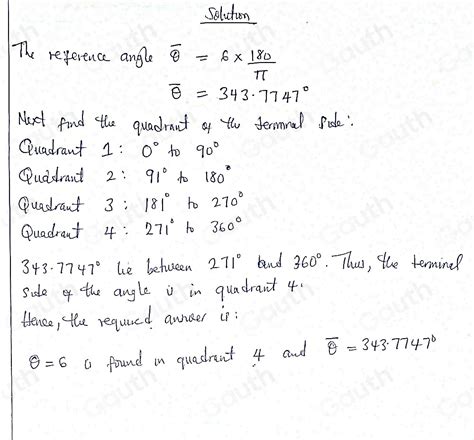 Solution
The reference angle θ̅ = 6 × 180/π
θ̅ = 343.7747°
Next find the quadrant of the terminal side:
Quadrant 1: 0° to 90°
Quadrant 2: 91° to 180°
Quadrant 3: 181° to 270°
Quadrant 4: 271° to 360°
343.7747° lie between 271° and 360°. Thus, the terminal
side of the angle is in quadrant 4.
Hence, the required answer is:
θ = 6 is found in quadrant 4 and θ̅ = 343.7747°